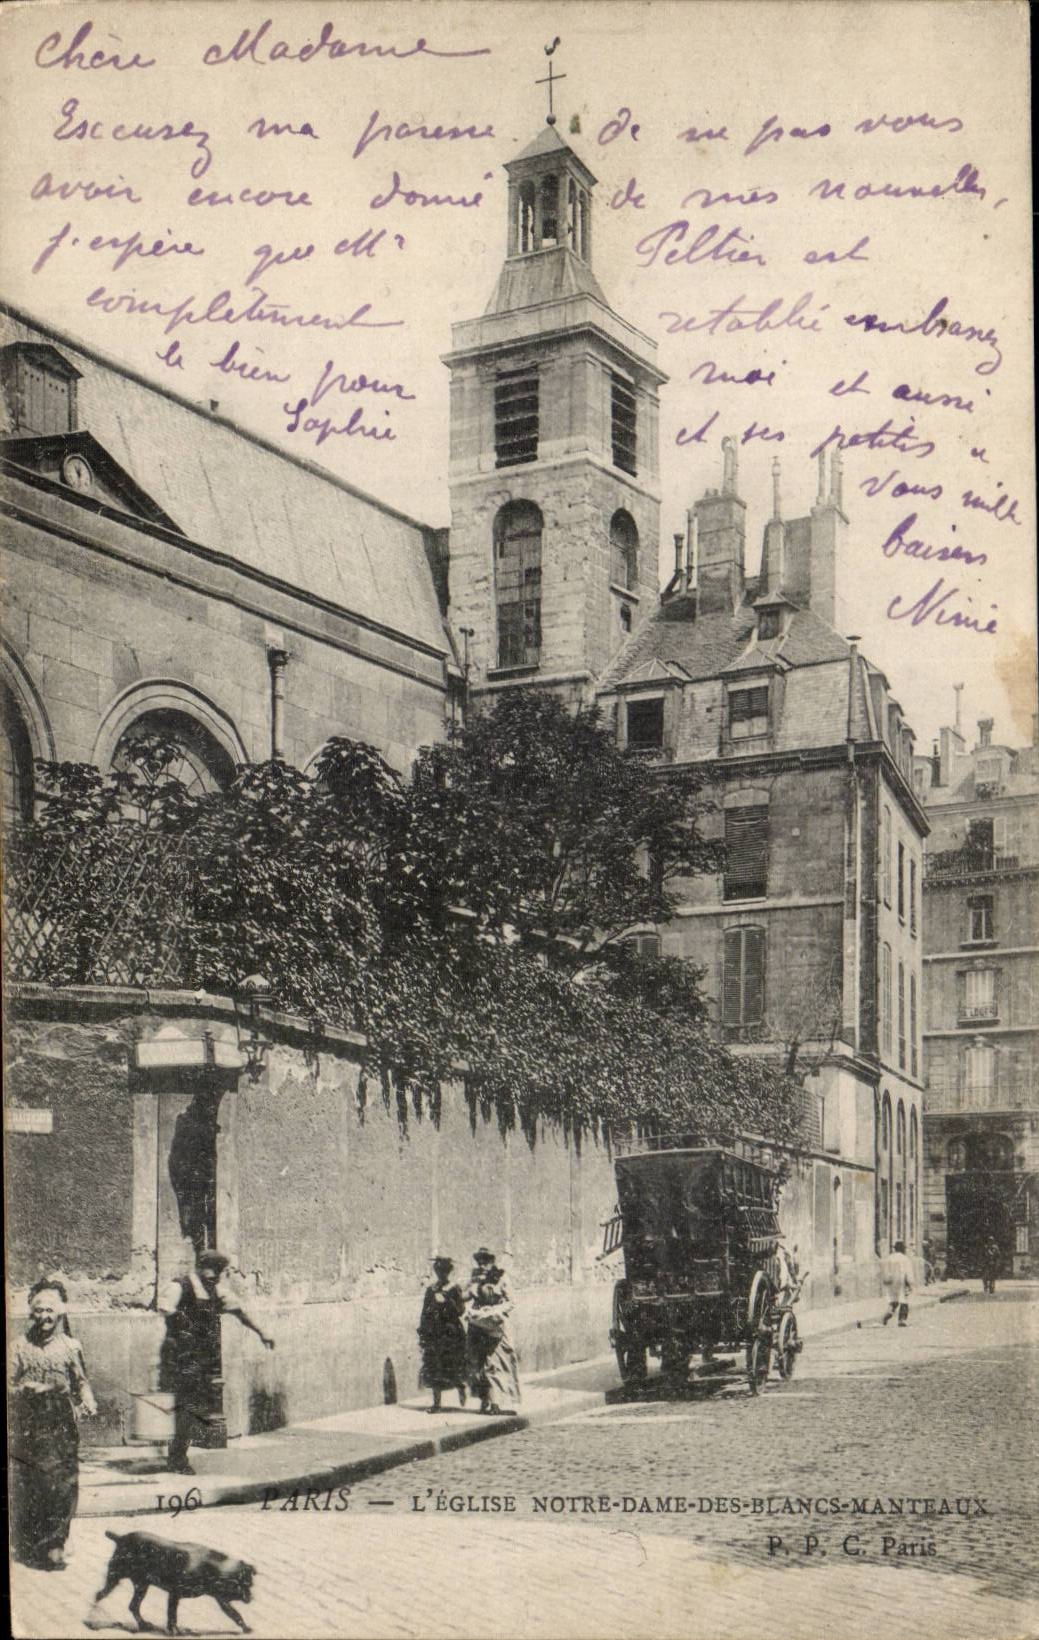 Chère Madame
Excusez ma paresse de ne pas vous
avoir encore donné de mes nouvelles,
j'espère que Mr Peltier est
complètement retablie embrassez
le bien pour moi et aussi
Sophie et ses petites a
Vous mille
baisers
Ninie
A LOUER
196 — PARIS — L'ÉGLISE NOTRE-DAME-DES-BLANCS-MANTEAUX
P. P. C. Paris